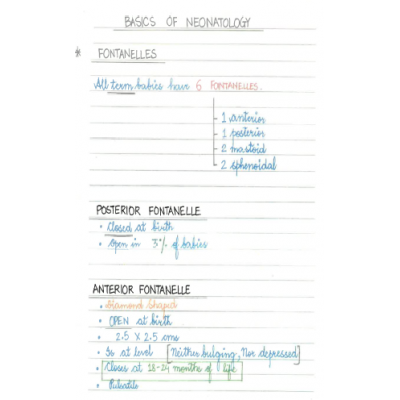 BASICS OF NEONATOLOGY
* FONTANELLES
All term babies have 6 FONTANELLES.
1 anterior
1 posterior
2 mastoid
2 sphenoidal
POSTERIOR FONTANELLE
• Closed at birth
• open in 3% of babies
ANTERIOR FONTANELLE
• Diamond Shaped
• OPEN at birth
• 2.5 X 2.5 cms
• Is at level [Neither bulging, Nor depressed]
• Closes at 18-24 months of life
• Pulsatile